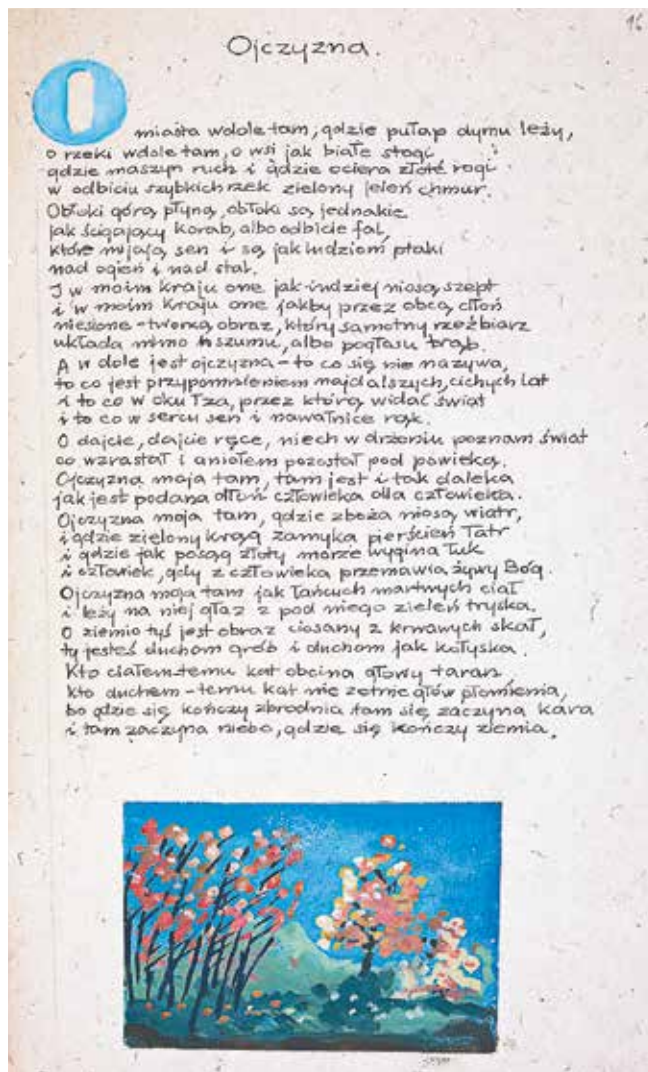 16
Ojczyzna.
O miasta wdole tam, gdzie pułap dymu leży,
o rzeki wdole tam, o wsi jak białe stogi
gdzie maszyn ruch i gdzie ociera złote rogi
w odbiciu szybkich rzek zielony jeleń chmur.
Obłoki górą płyną, obłoki są jednakie
jak ścigający korab, albo odbicie fal,
które mijają sen i są jak ludziom ptaki
nad ogień i nad stal.
I w moim kraju one jak indziej niosą szept
i w moim kraju one jakby przez obcą dłoń
niesione - tworzą obraz, który samotny rzeźbiarz
układa mimo szumu, albo pogłasu trąb.
A w dole jest ojczyzna - to co się nie nazywa,
to co jest przypomnieniem najdalszych, cichych lat
i to co w oku łza, przez którą widać świat
i to co w sercu sen i nawałnice rąk.
O dajcie, dajcie ręce, niech w drżeniu poznam świat
co wzrastał i aniołem pozostał pod powieką.
Ojczyzna moja tam, tam jest i tak daleka
jak jest podana dłoń człowieka dla człowieka.
Ojczyzna moja tam, gdzie zboża niosą wiatr,
i gdzie zielony krąg zamyka pierścień Tatr
i gdzie jak posąg złoty morze wygina łuk
i człowiek, gdy z człowieka przemawia żywy Bóg.
Ojczyzna moja tam jak łańcuch martwych ciał
i leży na niej głaz z pod niego zieleń tryska.
O ziemio tyś jest obraz ciosany z krwawych skał,
ty jesteś duchom grób i duchom jak kołyska.
Kto ciałem - temu kat obcina głowy taran
kto duchem - temu kat nie zetnie głów płomienia,
bo gdzie się kończy zbrodnia tam się zaczyna kara
i tam zaczyna niebo, gdzie się kończy ziemia.